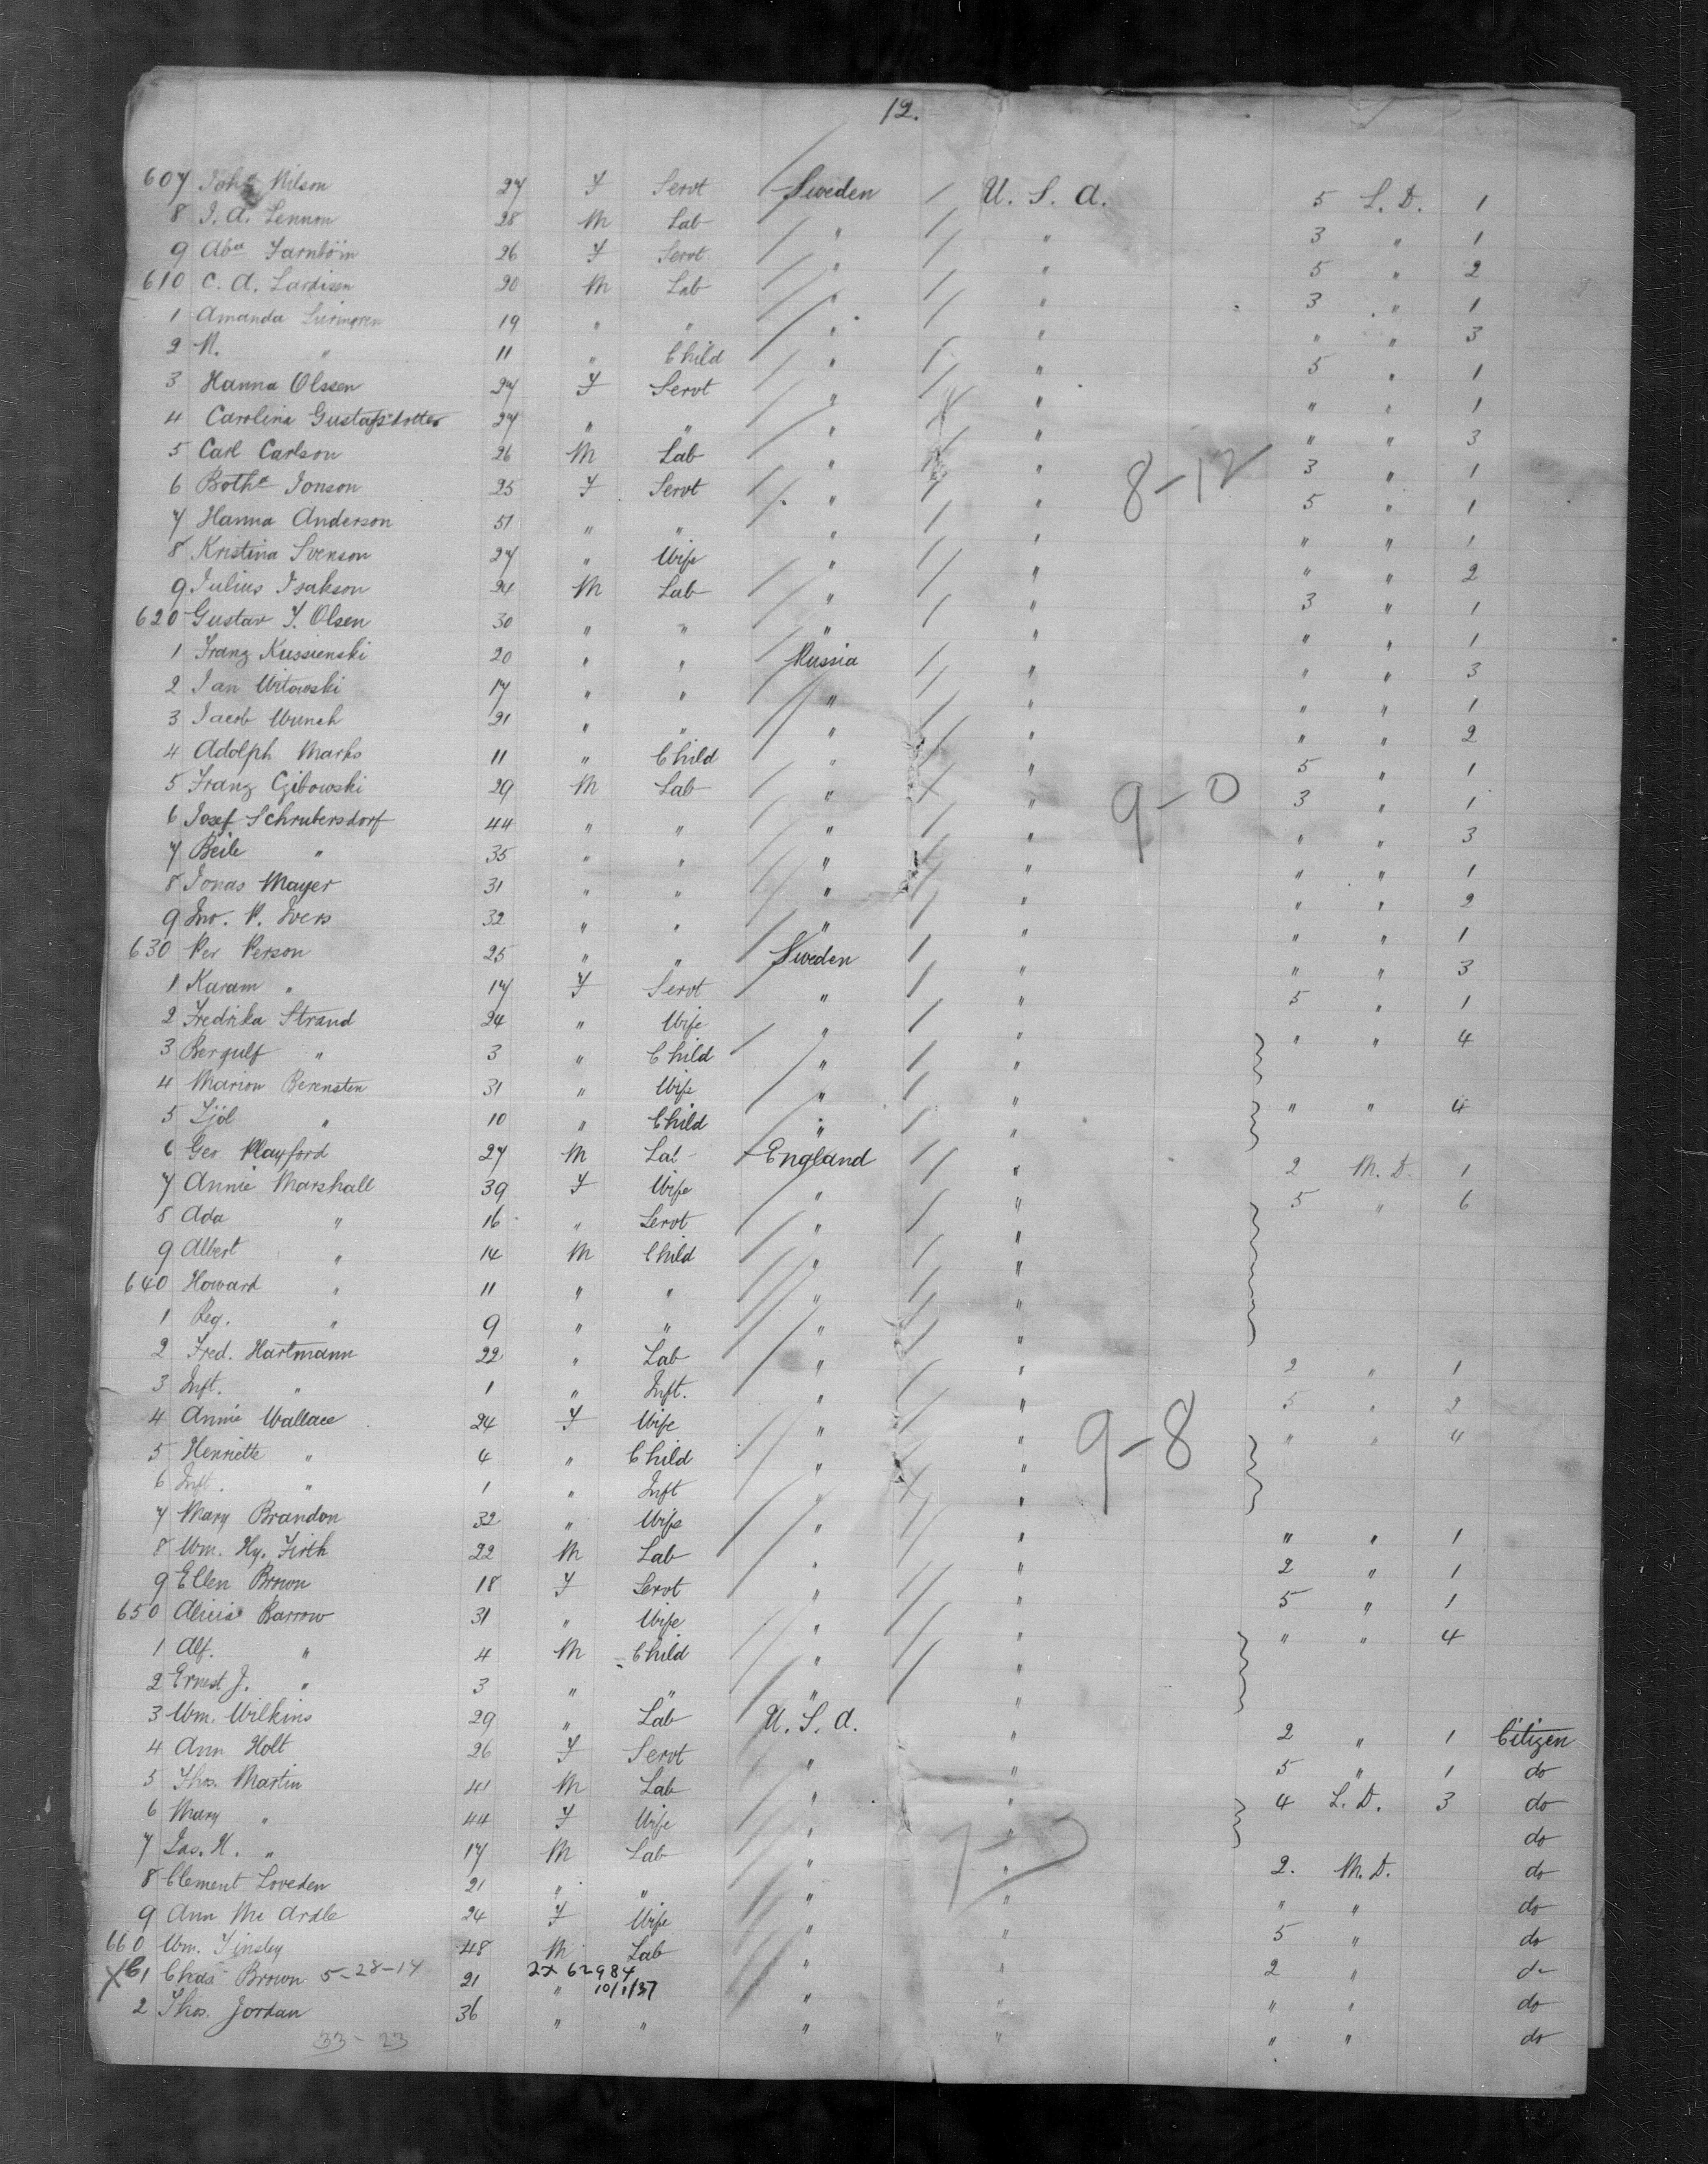 12.
607 Joh Nilson 27 F Servt Sweden / U. S. A. 5 L. D. 1
8 J. A. Lennon 28 M Lab " / " 3 " 1
9 Aba 26 F Servt " / " 5 " 2
610 C. A. Lardisen 20 M Lab " / " 3 " 1
1 Amanda 19 " " " / " " " 3
2 N. " 11 " Child " / " 5 " 1
3 Hanna Olssen 27 F Servt " / " " " 1
4 Carolina Gustafsdotter 27 " " " / " " " 3
5 Carl Carlson 26 M Lab " / " 3 " 1
6 Bothe Jonson 25 F Servt " / " 5 " 1
7 Hanna Anderson 51 " " " / " " " 1
8 Kristina Svenson 27 " Wife " / " " " 2
9 Julius Isakson 24 M Lab " / " 3 " 1
620 Gustav F. Olsen 30 " " " / " " " 1
1 Franz Kussienski 20 " " Russia / " " " 3
2 Jan Witowski 17 " " " / " " " 1
3 Jacob Wunch 21 " " " / " " " 2
4 Adolph Marks 11 " Child " / " 5 " 1
5 Franz Cgibowski 29 M Lab " / " 3 " 1
6 Josef Schrubersdorf 44 " " " / " " " 3
7 Beile " 35 " " " / " " " 1
8 Jonas Mayer 31 " " " / " " " 2
9 Jno. P. Ivers 32 " " " / " " " 1
630 Per Person 25 " " Sweden / " " " 3
1 Karam " 17 F Servt " / " 5 " 1
2 Fredrika Strand 24 " Wife " / " " " 4
3 Bergulf " 3 " Child " / "
4 Marion Berensten 31 " Wife " / " " " 4
5 " 10 " Child " / "
6 Geo Playford 27 M Lab England / " 2 M. D. 1
7 Annie Marshall 39 F Wife " / " 5 " 6
8 Ada " 16 " Servt " / "
9 Albert " 14 M Child " / "
640 Howard " 11 " " " / "
1 Reg. " 9 " " " / "
2 Fred. Hartmann 22 " Lab " / " 2 " 1
3 Inft. " 1 " Inft. " / " 5 " 2
4 Annie Wallace 24 F Wife " / " " " 4
5 Henriette " 4 " Child " / "
6 Inft. " 1 " Inft " / "
7 Mary Brandon 32 " Wife " / " " " 1
8 Wm. Hy. Firth 22 M Lab " / " 2 " 1
9 Ellen Brown 18 F Servt " / " 5 " 1
650 Alicia Barrow 31 " Wife " / " " " 4
1 Alf. " 4 M Child " / "
2 Ernest J. " 3 " " " / "
3 Wm. Wilkins 29 " Lab U. S. A. " 2 " 1 Citizen
4 Ann Holt 26 F Servt " " 5 " 1 do
5 Thos. Martin 41 M Lab " " 4 L. D. 3 do
6 Mary " 44 F Wife " " do
7 Jas. H. " 17 M Lab " " 2. M. D. do
8 Clement Loveden 21 " " " " " " do
9 Ann Mc Ardle 24 F Wife " " 5 " do
660 Wm. Tinsley 48 M Lab " " 2 " do
X61 Chas Brown 5-28-14 21 " 2x 62984 10/1/37 " " " " do
2 Thos. Jordan 36 " " " " " " do
33-23
8-12
9-0
9-8
7-3